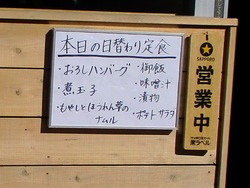 本日の日替わり定食
・おろしハンバーグ
・煮玉子
・もやしとほうれん草の
ナムル
・御飯
・味噌汁
・漬物
・ポテトサラダ
SAPPORO
営業中
黒ラベル